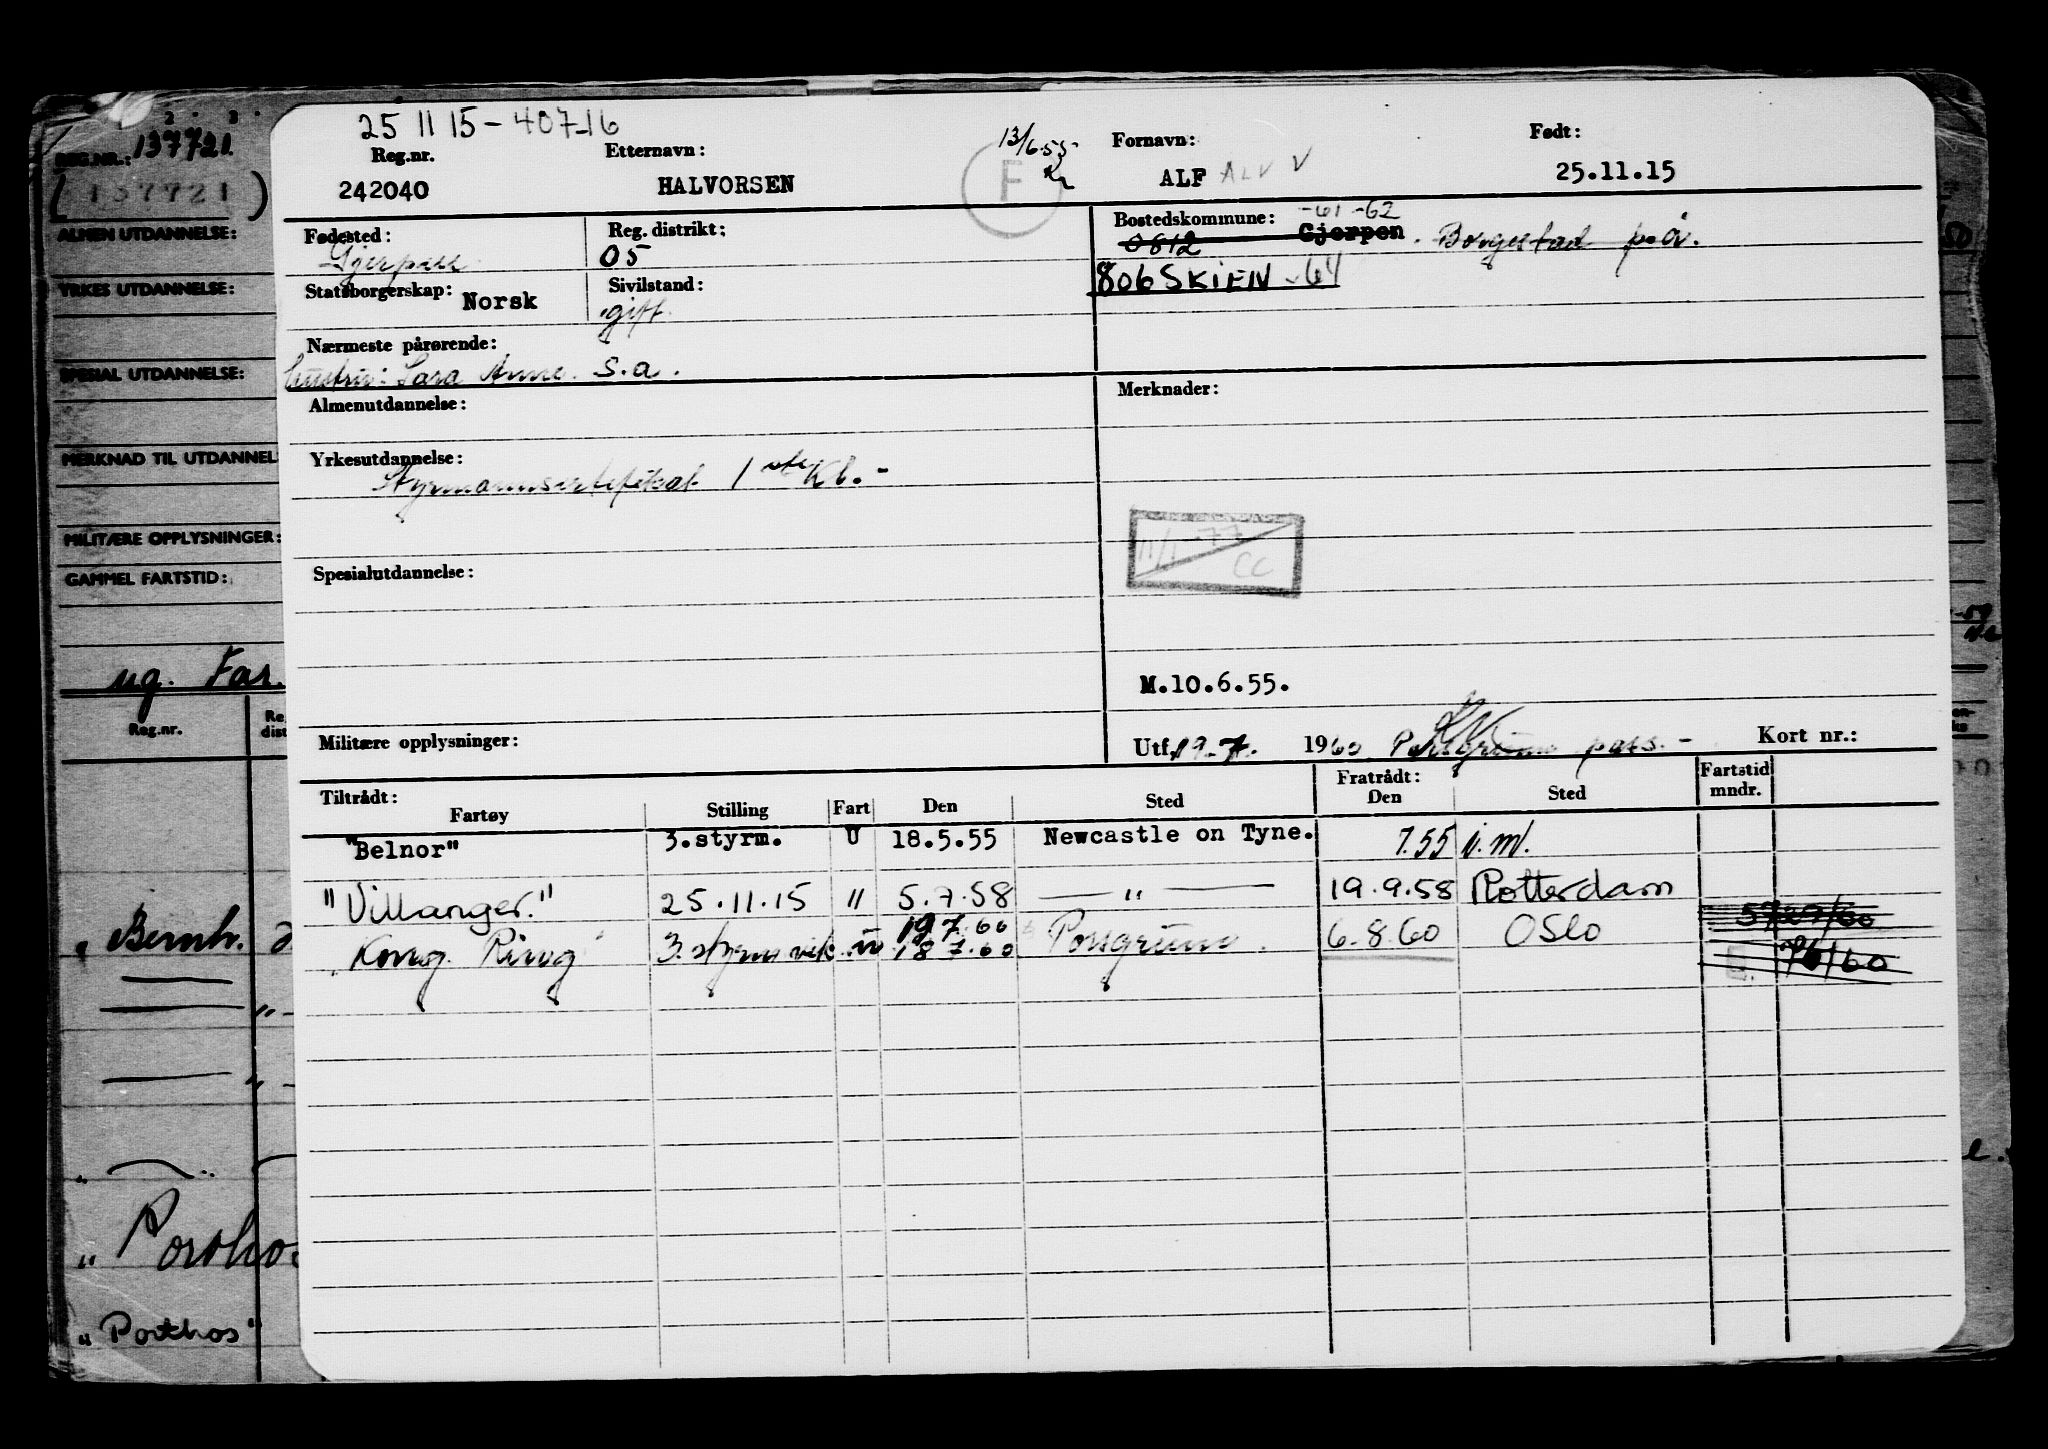 25 11 15 - 407-16
Reg.nr. Etternavn: 13/6.55 Fornavn: Født:
242040 HALVORSEN F ALF ALV V 25.11.15
Fødested: Reg. distrikt: Bostedskommune: -61 -62
Gjerpen 05 0812 Gjerpen. Borgestad p.å.
Statsborgerskap: Norsk Sivilstand: 806 SKIEN -64
gift.
Nærmeste pårørende:
hustru: Lara Anne. S.a.
Almenutdannelse: Merknader:
Yrkesutdannelse:
Styrmannsertifikat 1ste Kl.-
11/1-77
CC
Spesialutdannelse:
M.10.6.55.
Militære opplysninger: Utf. 19-7. 1960 pass.- Kort nr.:
Tiltrådt: Fratrådt: Fartstid
Fartøy Stilling Fart Den Sted Den Sted mndr.
"Belnor" 3.styrm. U 18.5.55 Newcastle on Tyne. 7.55 i.m.
"Villanger." 25.11.15 " 5.7.58 — " — 19.9.58 Rotterdam
19 7.60 5727/60
"Kong Ring" 3. styrm vik. 18 7.60 Porsgrunn. 6.8.60 Oslo
76/60
REG.NR.: 137721.
(137721)
ALMEN UTDANNELSE:
YRKES UTDANNELSE:
SPESIAL UTDANNELSE:
MERKNAD TIL UTDANNEL
MILITÆRE OPPLYSNINGER:
GAMMEL FARTSTID:
ug. Far.
Reg.nr. Re
dist
Bernh.
"Porthos
"Porthos"